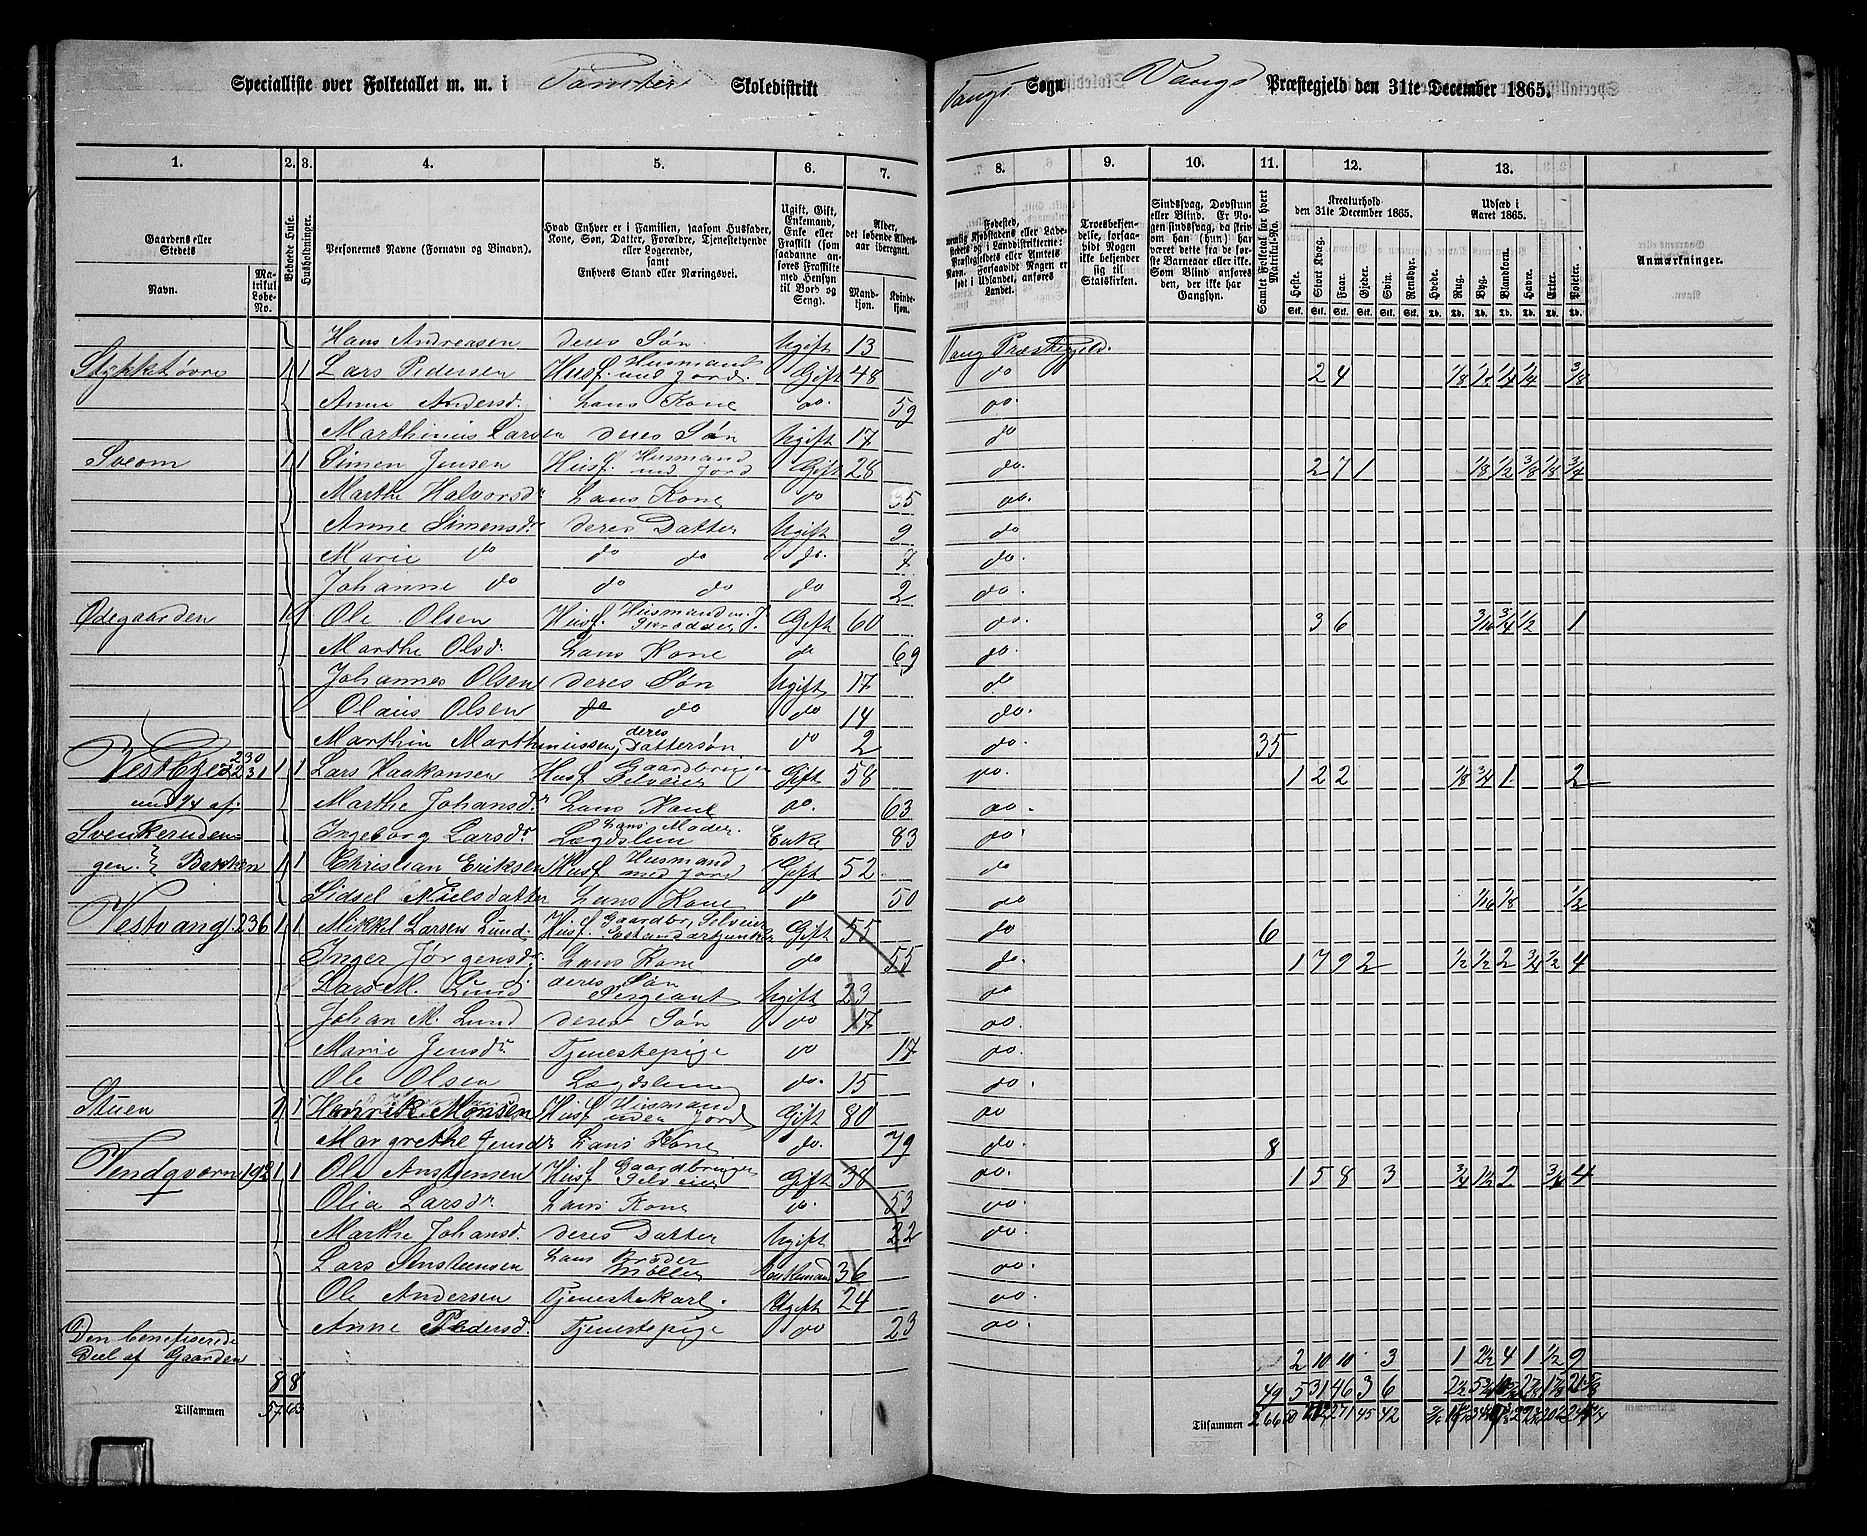 Specialliste over Folketallet m. m. i Tomter Skoledistrikt Vangs Sogn Vangs Præstegjeld den 31te December 1865.
1. 2. 3. 4. 5. 6. 7. 8. 9. 10. 11. 12. 13.
Gaardens eller Stedets Navn. Matrikul Løbe-No. Beboede Huse. Husholdninger.
Personernes Navne (Fornavn og Binavn).
Hvad Enhver er i Familien, saasom Husfader, Kone, Søn, Datter, Forældre, Tjenestetyende eller Logerende, samt Enhvers Stand eller Næringsvei.
Ugift, Gift, Enkemand, Enke eller Fraskilt (som saadanne anføres Fraskilte med Hensyn til Bord og Seng).
Alder, det løbende Aldersaar iberegnet. Mandkjøn. Kvindekjøn.
Troesbekjendelse, forsaavidt Nogen ikke bekjender sig til Statskirken.
Sindssvag, Døvstum eller Blind. Er Nogen sindssvag, da skrives om han (hun) har været dette fra første Barneaar eller ikke. Som Blind anføres den, der ikke har Gangsyn.
Samlet Folketal for hvert Matrikul-No.
Kreaturhold den 31te December 1865. Heste. Stort Kvæg. Faar. Gjeder. Svin. Rensdyr.
Udsæd i Aaret 1865. Hvede. Rug. Byg. Blandkorn. Havre. Erter. Poteter.
Anmærkninger.
Hans Andreasen deres Søn. Ugift 13 Vang Præstegjeld.
Stykktøvre 1 1 Lars Pedersen Husf. Husmand med Jord. Gift 48 do 2 4 1/8 1/2 1/4 1/4 3/8
Anne Andersd. hans Kone do. 59 do.
Marthinius Larsen deres Søn Ugift 17 do
Sveom 1 1 Simen Jensen Husf. Husmand med Jord Gift 28 do. 2 7 1 1/8 1/2 3/8 1/8 3/4
Marthe Halvorsdr hans Kone do 35 do.
Anne Simensdr deres Datter Ugift 9 do
Marie do do do do. 7 do.
Johanne do do do do 2 do.
Ødegaarden 1 1 Ole Olsen Husf. Gift 60 do. 3 6 3/16 3/4 1/2 1
Marthe Olsdr hans Kone do 69 do.
Johannes Olsen deres Søn Ugift 17 do
Olaus Olsen do do do 14 do.
Marthin Marthinussen, deres Dattersøn do 2 do. 35
230 231 1 1 Lars Haakonsen Husf Gaardbruger Selveier Gift 58 do. 1 2 2 1/8 3/4 1 2
Marthe Johansdr hans Kone do. 63 do.
Ingeborg Larsdr hans Moder. Lægdslem Enke 83 do.
Bakken 1 1 Christian Eriksen Husf Husmand med Jord Gift 52 do
Sidsel Nielsdatter hans Kone do 50 do 1/16 1/8 1/2
Vestvang 236 1 1 Mikkel Larsen Lund. Husf. Gaardbr, Selveier Gift 55 do 6
Inger Jørgensdr hans Kone do 55 do. 1 7 9 2 1/2 1/2 2 3/4 1/2 4
Lars M. Lund deres Søn Sergeant Ugift 23 do
Johan M. Lund deres Søn do 17 do.
Marie Jensdr Tjenestepige do 17 do.
Ole Olsen Lægdslem do. 15 do.
Stuen 1 Henrik Monsen Husf Husmand uden Jord Gift 80 do
Margrethe Jensdr hans Kone do. 79 do. 8
Vendqværn 192 1 1 Ole Anstensen Husf Gaardbruger Selveier Gift 38 do. 1 5 8 3 3/4 1 1/2 2 3/4 4
Olia Larsdr hans Kone do. 53 do.
Marthe Johansd. deres Datter Ugift 22 do.
Lars Anstensen hans Broder Møller 36 do.
Ole Andersen Tjenestekarl. Ugift 24 do.
Anne Pedersd. Tjenestepige do 23 do.
Den benefiserede Deel af Gaarden 2 10 10 3 1 2 1/2 4 1 1/2 9
8 8 49 5 31 46 3 6
Tilsammen 57 63 Tilsammen 266